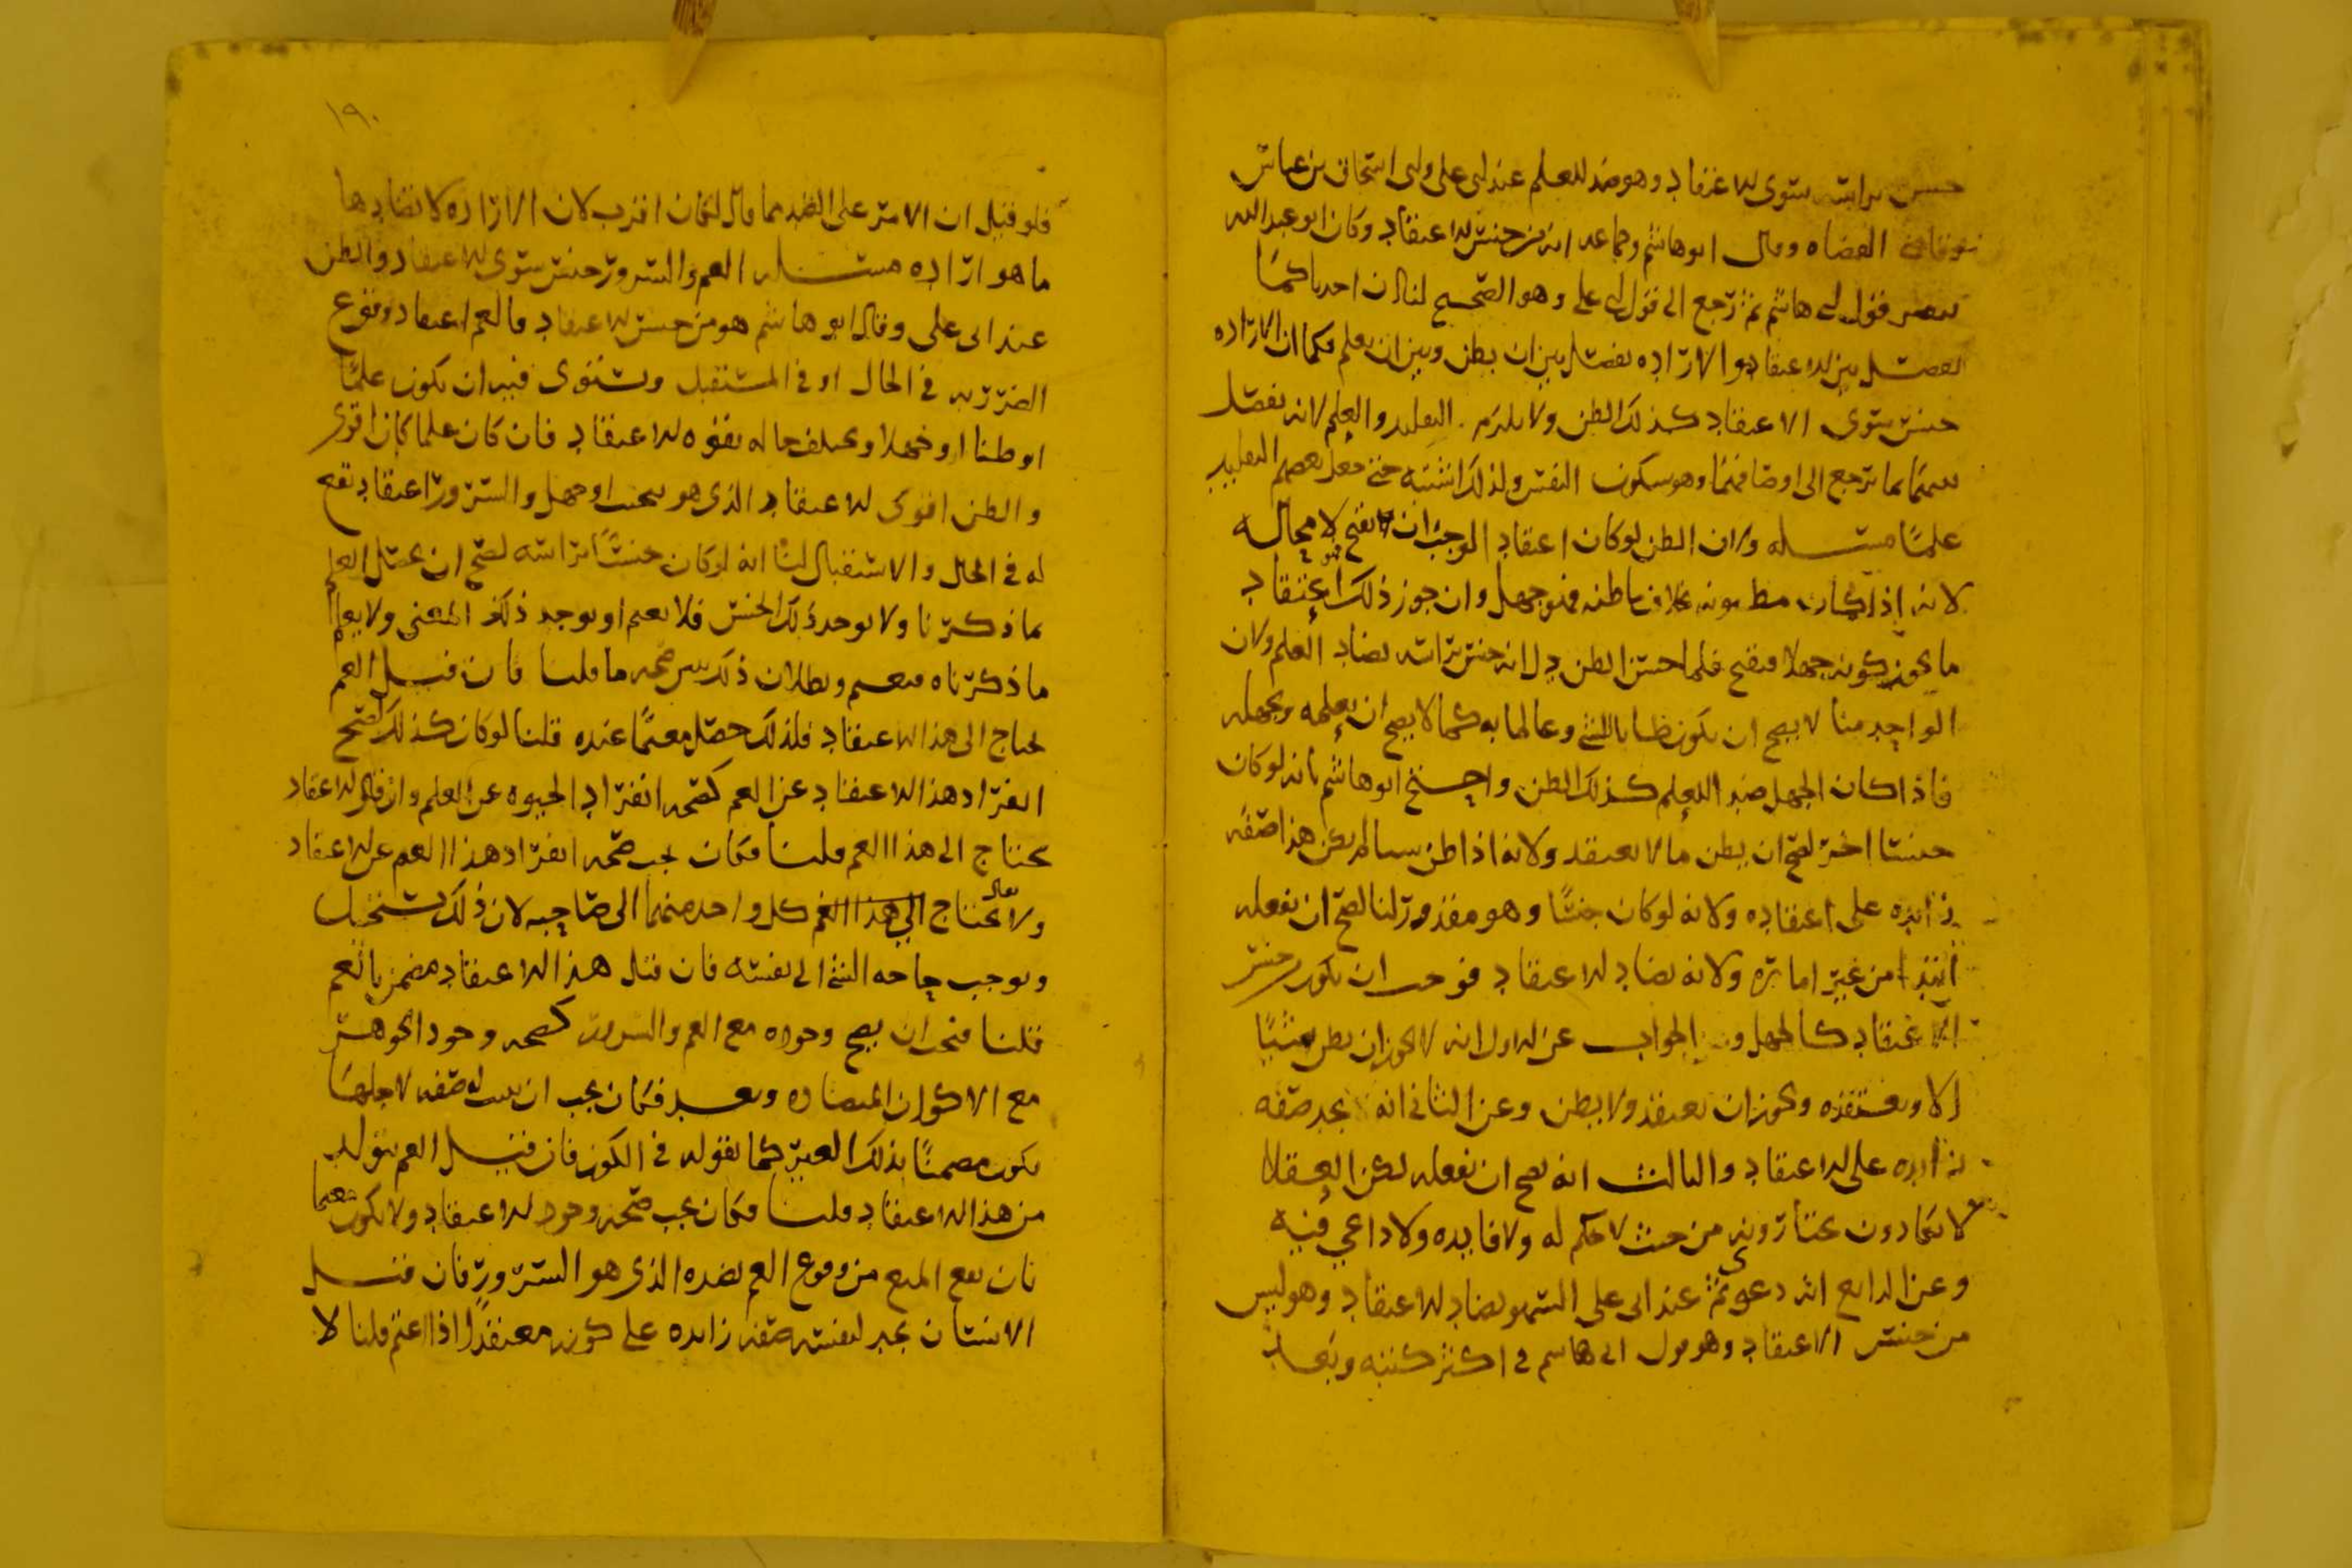 جنس براسه سوى الاعتقاد وهو ضد للعلم عند ابي علي وابي اسحاق بن عياش
القضاه وقال ابو هاشم وجماعه انه من جنس الاعتقاد وكان ابو عبد الله
ينصر قول ابي هاشم ثم رجع الى قول ابي علي وهو الصحيح لنا ان احدنا كما
يفصل بين الاعتقاد والاراده يفصل بين ان يظن وبين ان يعلم فكما ان الاراده
جنس سوى الاعتقاد كذلك الظن ولا يلزم التقليد والعلم لانه يفصل
بينهما بما يرجع الى اوصافهما وهو سكون النفس ولذلك اشتبه حتى جعل بعضهم التقليد
علما مسله ولان الظن لو كان اعتقاد الوجب ان يقبح لا محاله
لانه اذا كان مظنونه بخلاف ما ظنه فهو جهل وان جوز ذلك فهو اعتقاد
ما يجوز كونه جهلا فيقبح فلما حسن الظن دل انه جنس براسه يضاد العلم ولان
الواحد منا لا يصح ان يكون ظانا بالشي وعالما به كما لا يصح ان يعلمه ويجهله
فاذا كان الجهل ضد العلم كذلك الظن واحتج ابو هاشم بانه لو كان
جنسا اخر لصح ان يظن ما لا يعتقد ولانه اذا ظن شيا لم يكن هذا صفه
زايده على اعتقاده ولانه لو كان جنسا وهو مقدور لنا لصح ان نفعله
ابتدا من غير اماره ولانه يضاد الاعتقاد فوجب ان يكون من جنس
الاعتقاد كالجهل والجواب عن الاول انه لا يجوز ان يظن شيا
الا ويعتقده ويجوز ان يعتقد ولا يظن وعن الثاني انه يجد صفه
زايده على الاعتقاد والثالث انه يصح ان نفعله لكن العقلا
لا يكادون يختارونه من حيث لا حكم له ولا فايده ولا داعي فيه
وعن الرابع انه دعوى ثم عند ابي علي السهو يضاد الاعتقاد وهو ليس
من جنس الاعتقاد وهو قول ابي هاشم في اكثر كتبه
١٩٠
فلو قيل ان الامر على الضد مما قال لكان اقرب لان الاراده لا يضادها
ما هو اراده مسله الغم والسرور جنس سوى الاعتقاد والظن
عند ابي علي وقال ابو هاشم هو من جنس الاعتقاد فالغم اعتقاد وقوع
الضرر به في الحال او في المستقبل ويستوي فيه ان يكون علما
او ظنا او جهلا ويختلف حاله بقوه الاعتقاد فان كان علما كان اقوى
والظن اقوى الاعتقاد الذي هو تبخيت او جهل والسرور اعتقاد نفع
له في الحال والاستقبال لنا انه لو كان جنسا براسه لصح ان يحصل العلم
بما ذكرنا ولا يوجد ذلك الجنس فلا يغم او يوجد ذلك المعنى ولا يعلم
ما ذكرناه فيغم وبطلان ذلك يبين صحه ما قلنا فان قيل الغم
يحتاج الى هذا الاعتقاد فلذلك حصل مغما عنده قلنا لو كان كذلك لصح
انفراد هذا الاعتقاد عن الغم كصحه انفراد الحيوه عن العلم وان قال الاعتقاد
يحتاج الى هذا الغم قلنا فكان يجب صحه انفراد هذا الغم عن الاعتقاد
ولا يقال يحتاج الي هذا الغم كل واحد منهما الى صاحبه لان ذلك يستحيل
ويوجب حاجه الشي الى نفسه فان قيل هذا الاعتقاد مضمن بالغم
قلنا فيجب ان يصح وجوده مع الغم والسرور كصحه وجود الجوهر
مع الاكوان المتضاده وبعد فكان يجب ان يثبت له صفه لاجلها
يكون مضمنا بذلك الغير كما نقوله في الكون فان قيل الغم يتولد
من هذا الاعتقاد قلنا فكان يجب صحه وجود الاعتقاد ولا يكون مغما
بان يقع المنع من وقوع الغم بضده الذي هو السرور فان قيل
الانسان يجد لنفسه صفه زايده على كونه معتقدا اذا اغتم قلنا لا